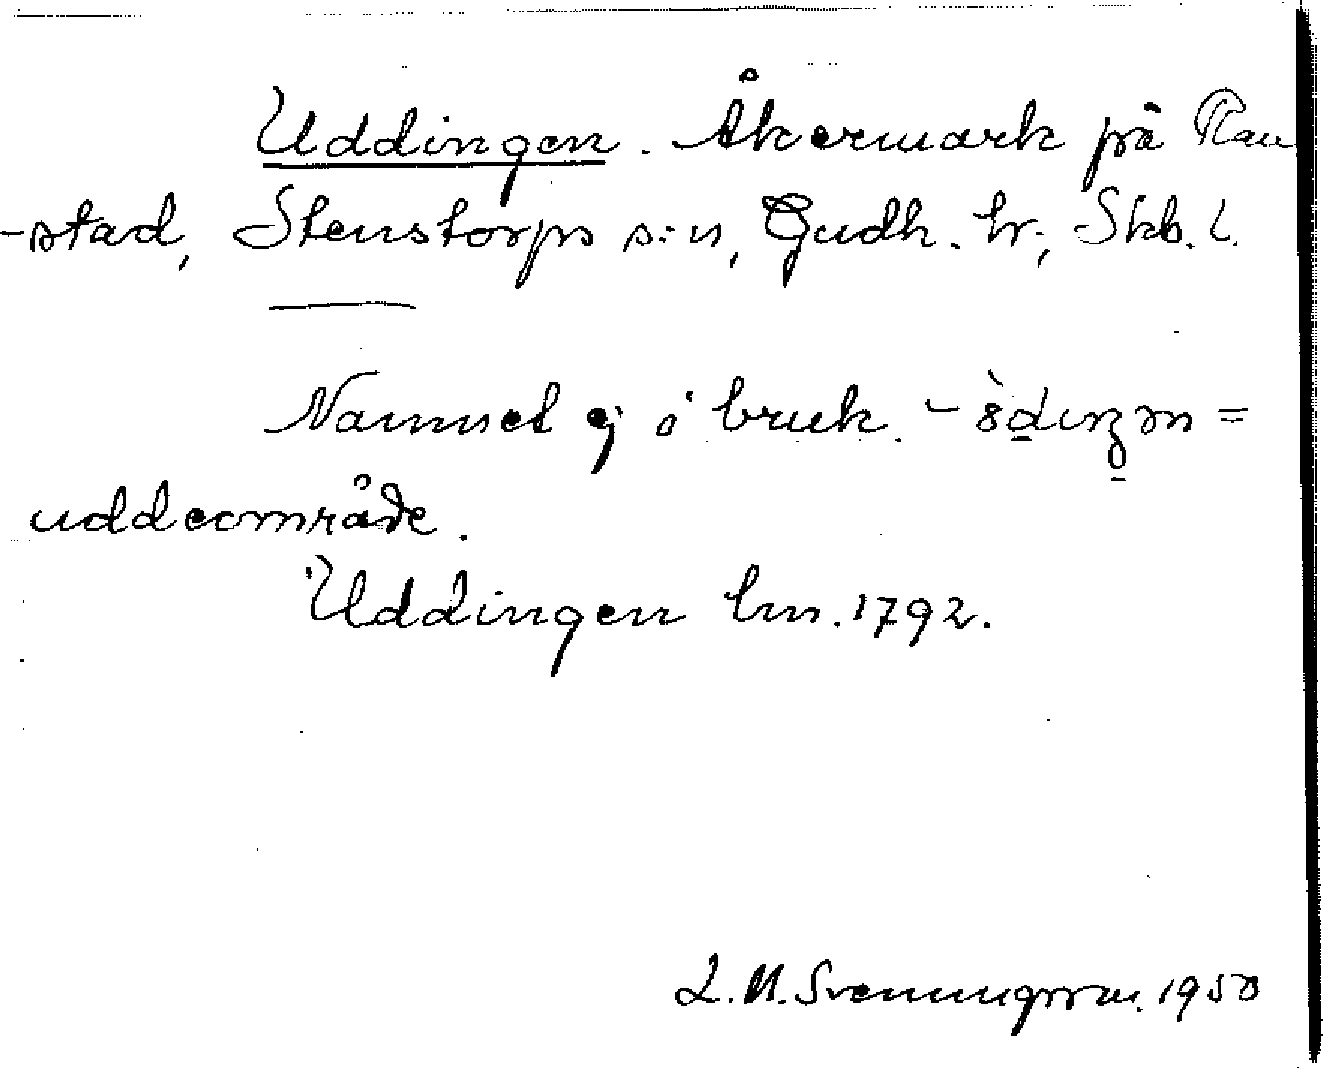 Uddingen. Åkermark på Rau
-stad, Stenstorps s:n, Gudh. hr; Skb. l.
Namnet ej i bruk. - =
uddeområde.
Uddingen lm. 1792.
L. M. Svenungsson. 1950